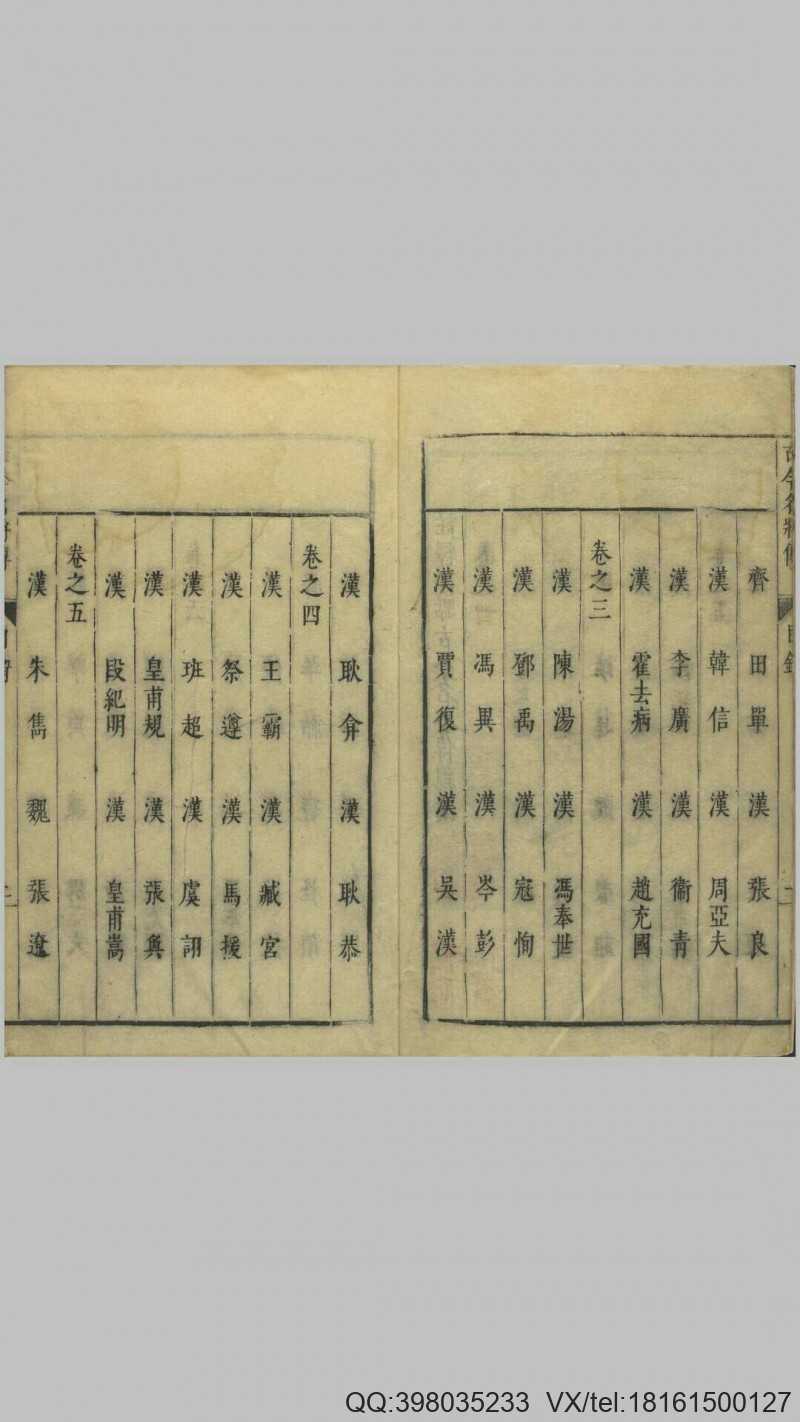 古今名將傳 目錄
齊 田單 漢 張良
漢 韓信 漢 周亞夫
漢 李廣 漢 衞青
漢 霍去病 漢 趙充國
卷之三
漢 陳湯 漢 馮奉世
漢 鄧禹 漢 寇恂
漢 馮異 漢 岑彭
漢 賈復 漢 吳漢
漢 耿弇 漢 耿恭
卷之四
漢 王霸 漢 臧宮
漢 祭遵 漢 馬援
漢 班超 漢 虞詡
漢 皇甫規 漢 張奐
漢 段紀明 漢 皇甫嵩
卷之五
漢 朱雋 魏 張遼
QQ:398035233 VX/tel:18161500127